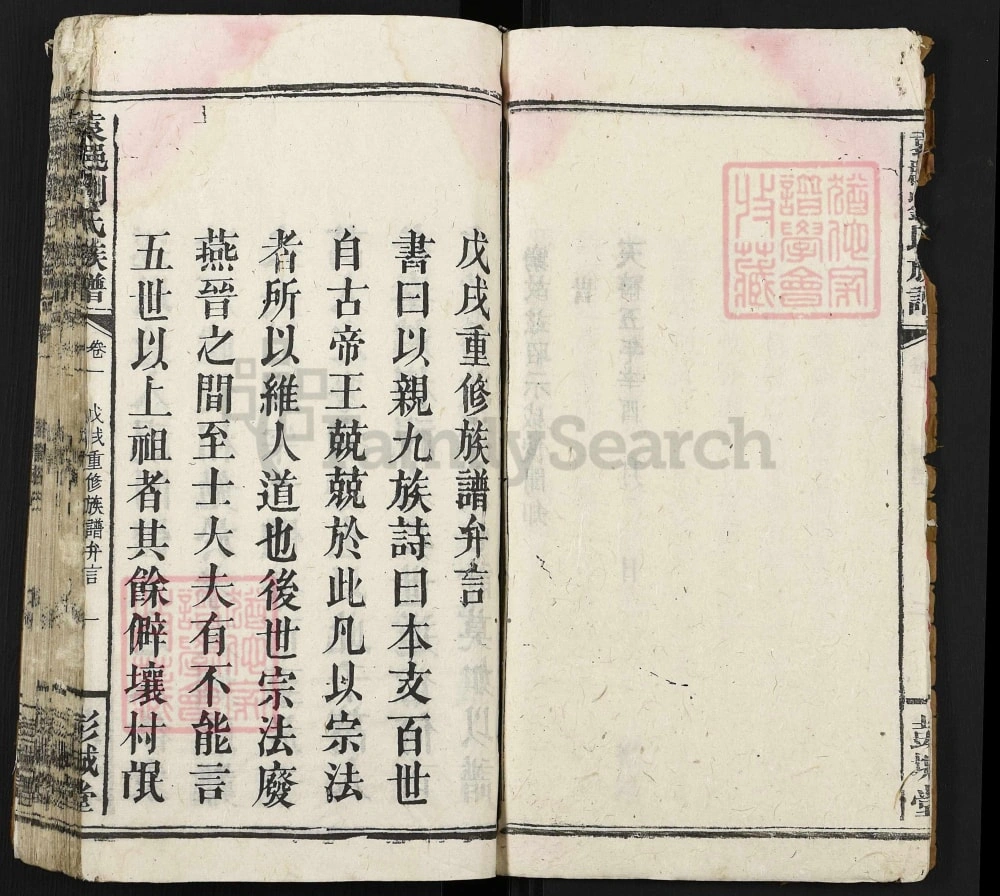 戊戌重修族譜弁言
書曰以親九族詩曰本支百世
自古帝王兢兢於此凡以宗法
者所以維人道也後世宗法廢
燕晉之間至士大夫有不能言
五世以上祖者其餘僻壤村氓
袁邑劉氏族譜
卷一
戊戌重修族譜弁言
一
彭城堂
FamilySearch